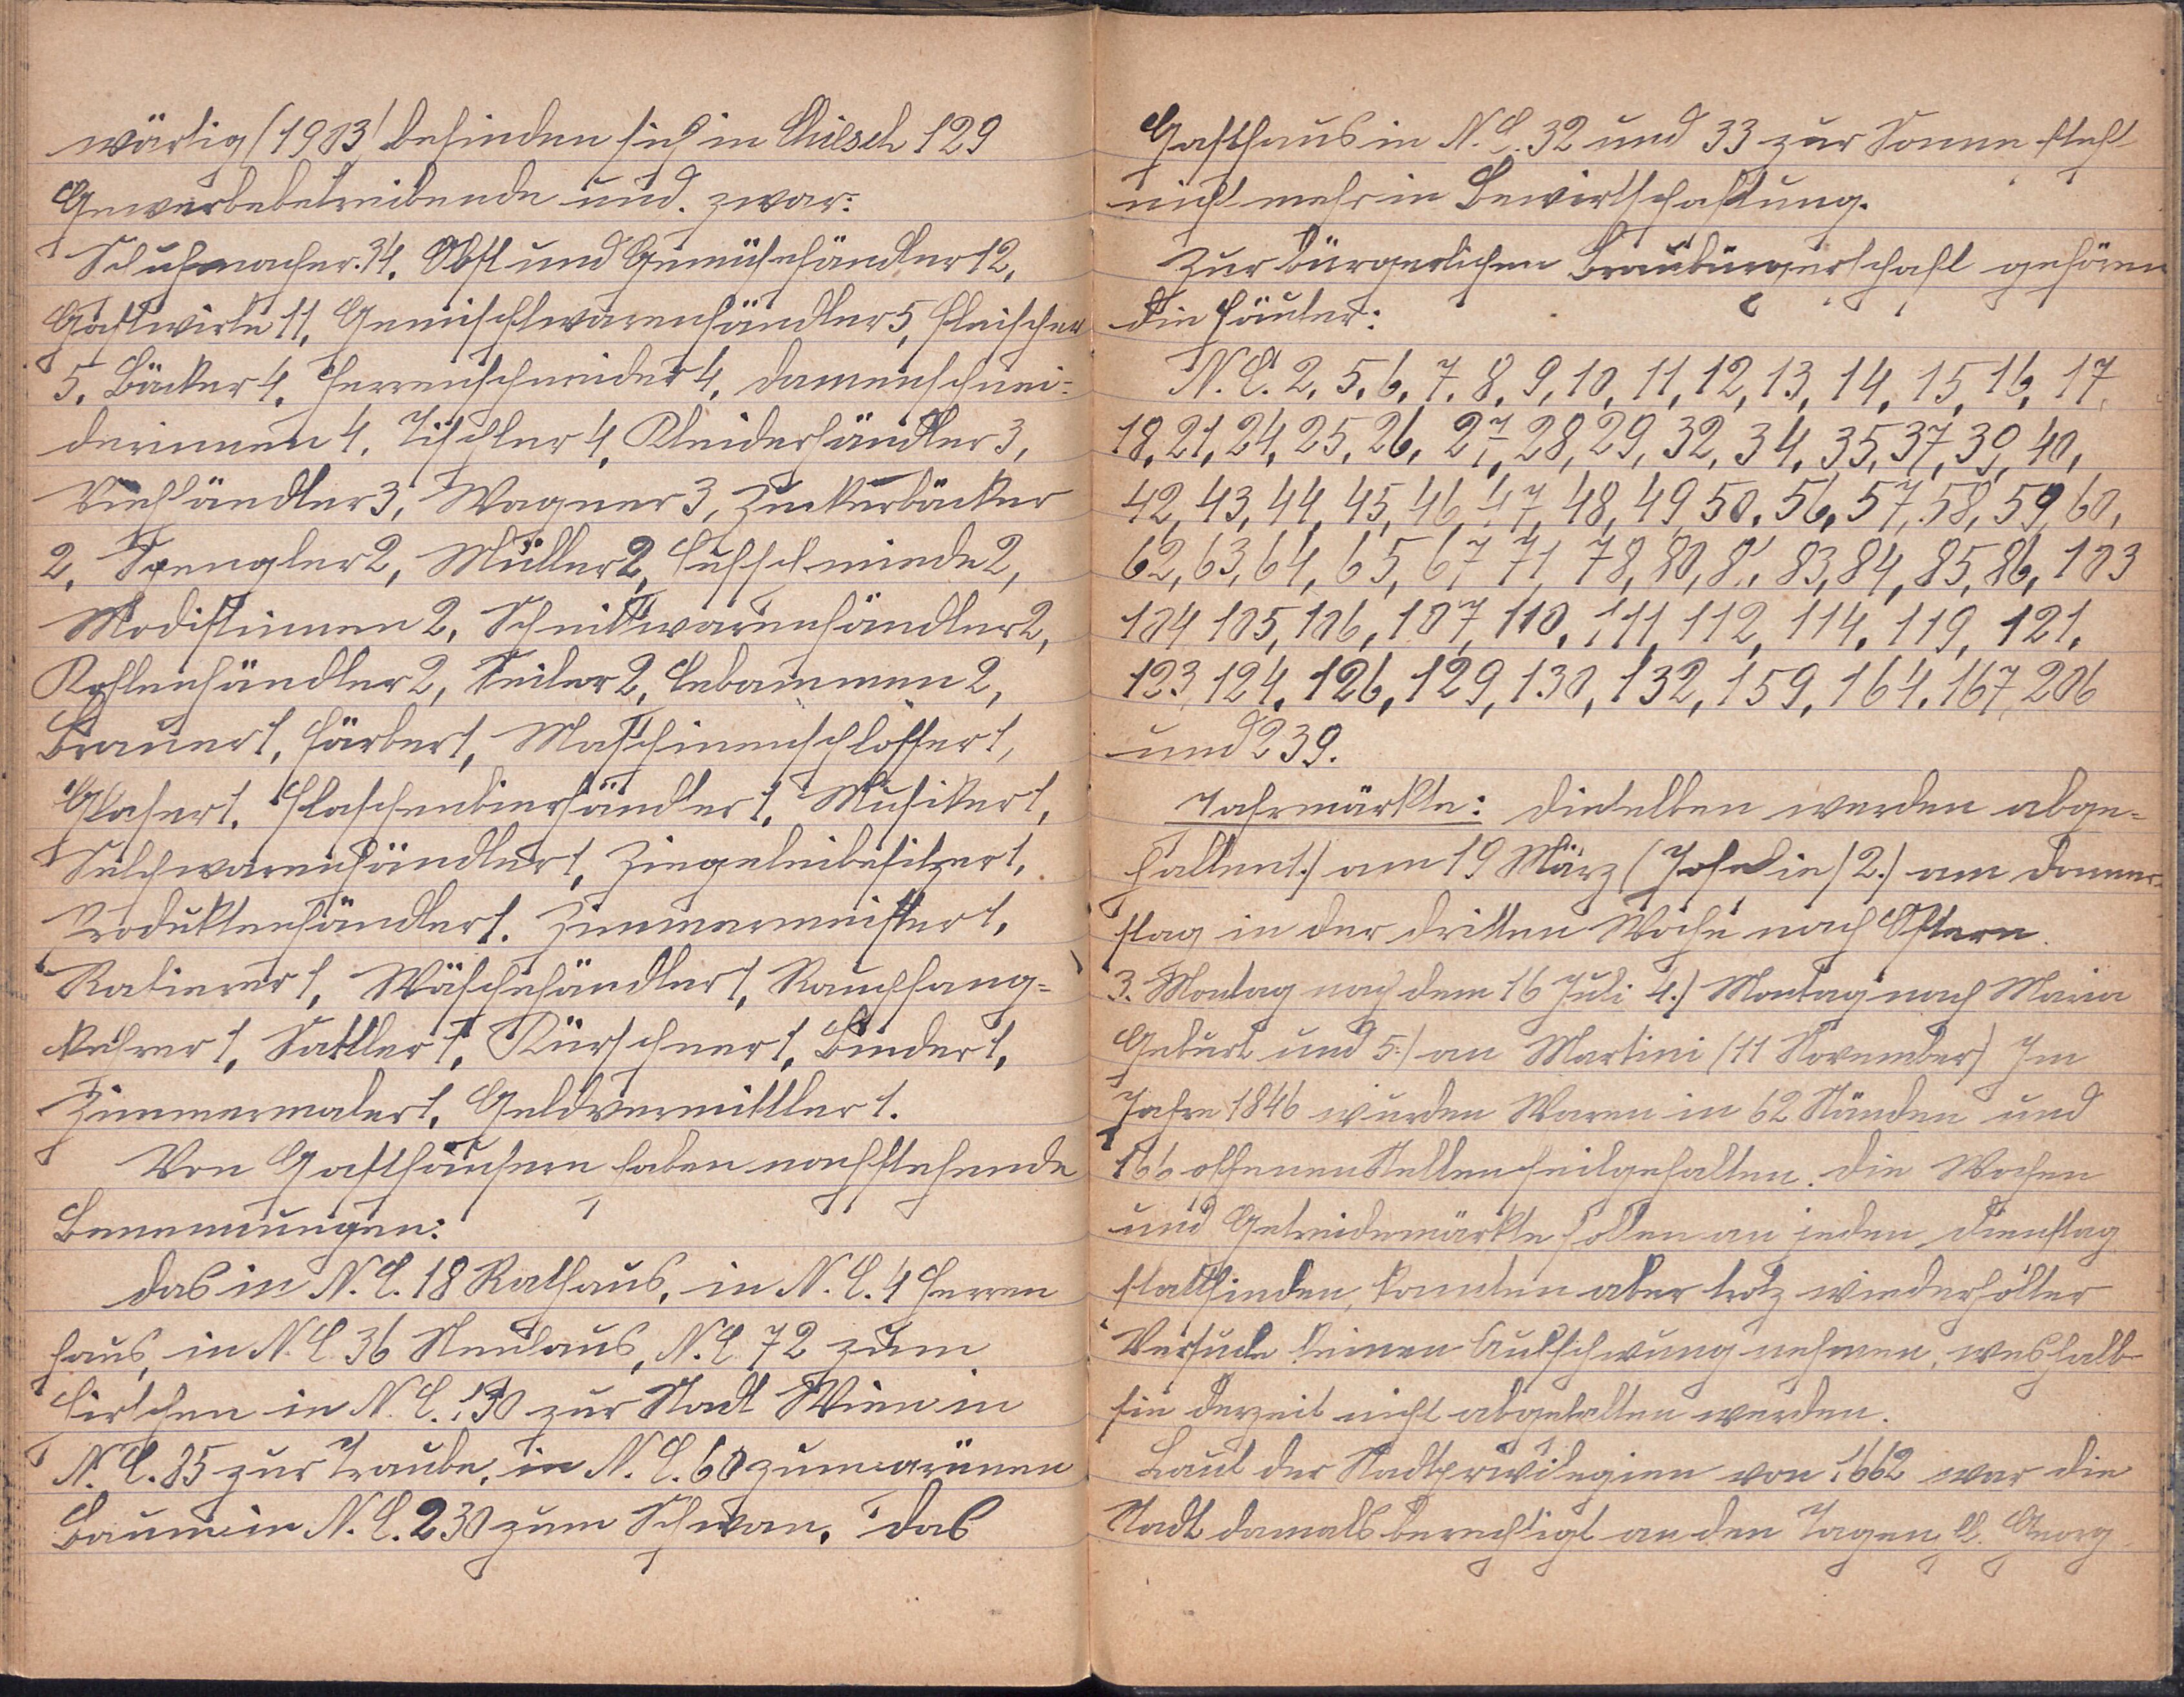 wärtig (1903) befinden sich in Chiesch 129
Gewerbebetreibende und. zwar:
Schuhmacher. 34. Obst und Gemüsehändler 12,
Gastwirte 11, Gemischtwarenhändler 5, Fleischer
5, Bäcker 4, Herrenschneider 4, Damenschnei=
derinnen 4, Tischler 4, Kleiderhändler 3,
Viehhändler 3, Wagner 3, Zuckerbäcker
2, Spengler 2, Müller 2, Hufschmiede 2,
Modistinnen 2, Schnittwarenhändler 2,
Kohlenhändler 2, Seiler 2, Hebammen 2,
Brauer 1, Färber 1, Maschinenschlosser 1,
Glaser 1, Flaschenbierhändler 1, Musiker 1,
Selchwarenhändler 1, Ziegeleibesitzer 1,
Produktenhändler 1. Zimmermeister 1,
Rasierer 1, Wäschehändler 1, Rauchfang=
kehrer 1, Sattler 1, Kürschner 1, Binder 1,
Zimmermaler 1, Geldvermittler 1.
Von Gasthäusern haben nachstehende
Benennungen:
das in N. C. 18 Rathaus, in N. C. 4 Herren
haus, in N. C 36 Neuhaus, N. C 72 zum
Hirschen in N. C. 130 zur Stadt Wien in
N. C. 85 zur Traube, in N. C. 60 zum grünen
Baum in N. C. 230 zum Schwan. Das
Gasthaus in N. C. 32 und 33 zur Sonne steht
nicht mehr in Bewirtschaftung.
Zur bürgerlichen Braubürgerschaft gehören
die Häuser:
N. C. 2, 5, 6, 7, 8, 9, 10, 11, 12, 13, 14, 15, 16, 17,
18, 21, 24, 25, 26, 27, 28, 29, 32, 34, 35, 37, 39, 40,
42, 43, 44, 45, 46, 47, 48, 49, 50, 56, 57, 58, 59, 60,
62, 63, 64, 65, 67, 71, 78, 80, 81, 83, 84, 85, 86, 103
104 105, 106, 107, 110, 111, 112, 114, 119, 121,
123, 124, 126, 129, 130, 132, 159, 164, 167, 206
und 239.
Jahrmärkte: Dieselben werden abge=
halten 1.) am 19 März (Josefie) 2.) am Donner=
stag in der dritten Woche nach Ostern.
3. Montag nach dem 16 Juli 4.) Montag nach Maria
Geburt und 5.) an Martini (11 November) Im
Jahre 1846 wurden Waren in 62 Ständen und
166 offenen Stellen feilgehalten. Die Wochen
und Getreidemärkte sollen an jeden Dienstag
stattfinden, konnten aber trotz wiederholter
Versuche keinen Aufschwung nehmen, weshalb
sie derzeit nicht abgehalten werden.
Laut der Stadtprivilegien von 1662 war die
Stadt damals berechtigt an den Tagen hl. Georg